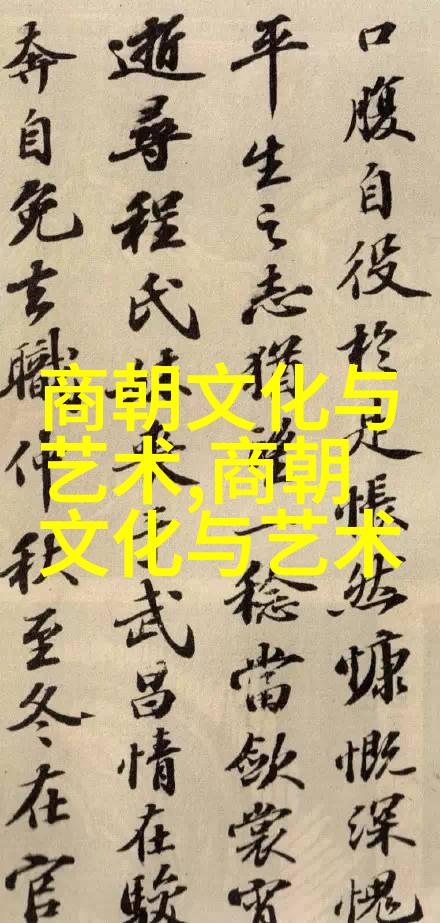 商朝文化与
艺术,商朝
文化与艺术
口腹自役於是悵然慷慨深愧
平生之志猶望一稔當斂裳宵
逝尋程氏妹喪于武昌情在駿
奔自免去職仲秋至冬在官